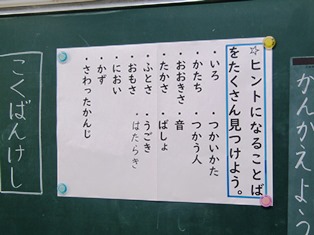 かんがえよう
☆ヒントになることば
をたくさん見つけよう。
・いろ ・つかいかた
・かたち ・つかう人
・おおきさ ・音
・たかさ ・ばしょ
・ふとさ ・うごき
・おもさ ・はたらき
・におい
・かず
・さわったかんじ
こくばんけし